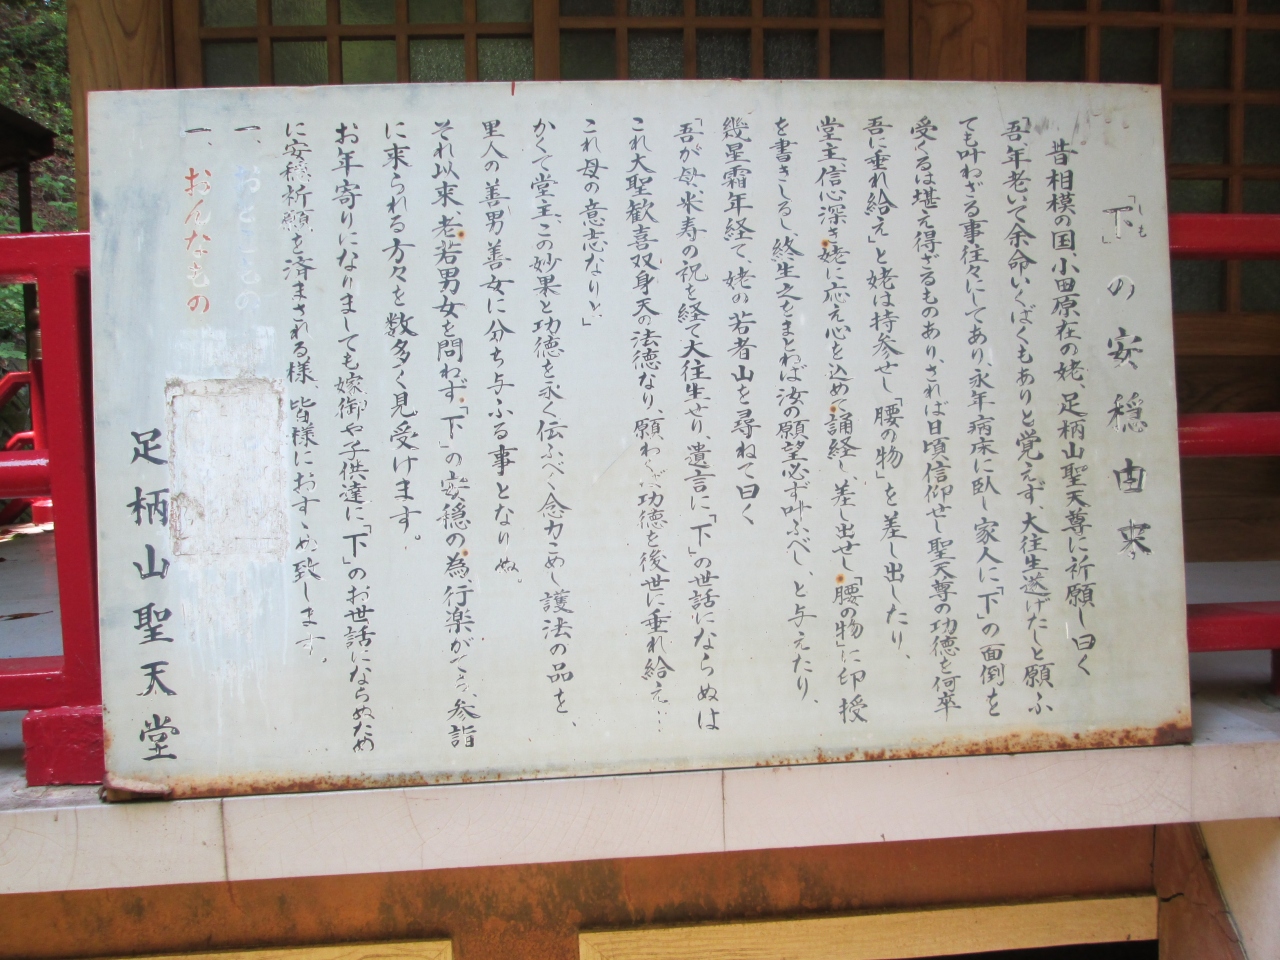 「下」の安穏由来
しも
昔相模の国、小田原在の姥、足柄山聖天尊に祈願し曰く
「吾、年老いて余命いくばくもありと覚えず、大往生遂げたしと願ふ
ても叶わざる事往々にしてあり、永年病床に臥し家人に「下」の面倒を
受くるは堪え得ざるものあり、されば日頃信仰せし聖天尊の功徳を何卒
吾に垂れ給え」と姥は持参せし「腰の物」を差し出したり、
堂主、信心深き姥に応え心を込めて誦経し差し出せし「腰の物」に印授
を書きしるし、終生之をまとわば汝の願望必ず叶ふべし、と与えたり、
幾星霜年経て、姥の若者山を尋ねて曰く
「吾が母、米寿の祝を経て大往生せり、遺言に「下」の世話にならぬは
これ大聖歓喜双身天の法徳なり、願わくば功徳を後世に垂れ給え…
これ母の意志なりと」
かくて堂主、この妙果と功徳を永く伝ふべく念力こめし護法の品を、
里人の善男善女に分ち与ふる事となりぬ。
それ以来、老若男女を問わず、「下」の安穏の為、行楽がてら、参詣
に来られる方々を数多く見受けます。
お年寄りになりましても嫁御や子供達に「下」のお世話にならぬため
に安穏祈願を済まされる様、皆様におすゝめ致します。
一、おとこもの
一、おんなもの
足柄山聖天堂